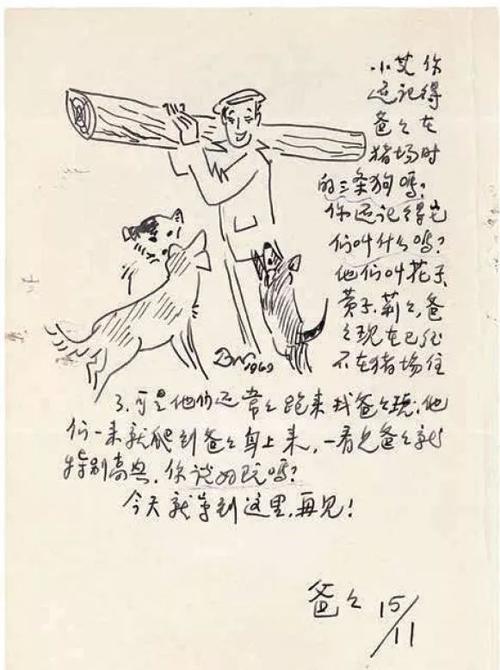 小艾你
还记得
爸々在
猪场时
的三条狗吗?
你还记得它
们叫什么吗?
他们叫花子、
黄子、莉々,爸
々现在已经
不在猪场住
1969
了,可是他们还常々跑来找爸々玩,他
们一来就爬到爸々身上来,一看见爸々就
特别高兴,你说好玩吗?
今天就写到这里,再见!
爸々 15/11